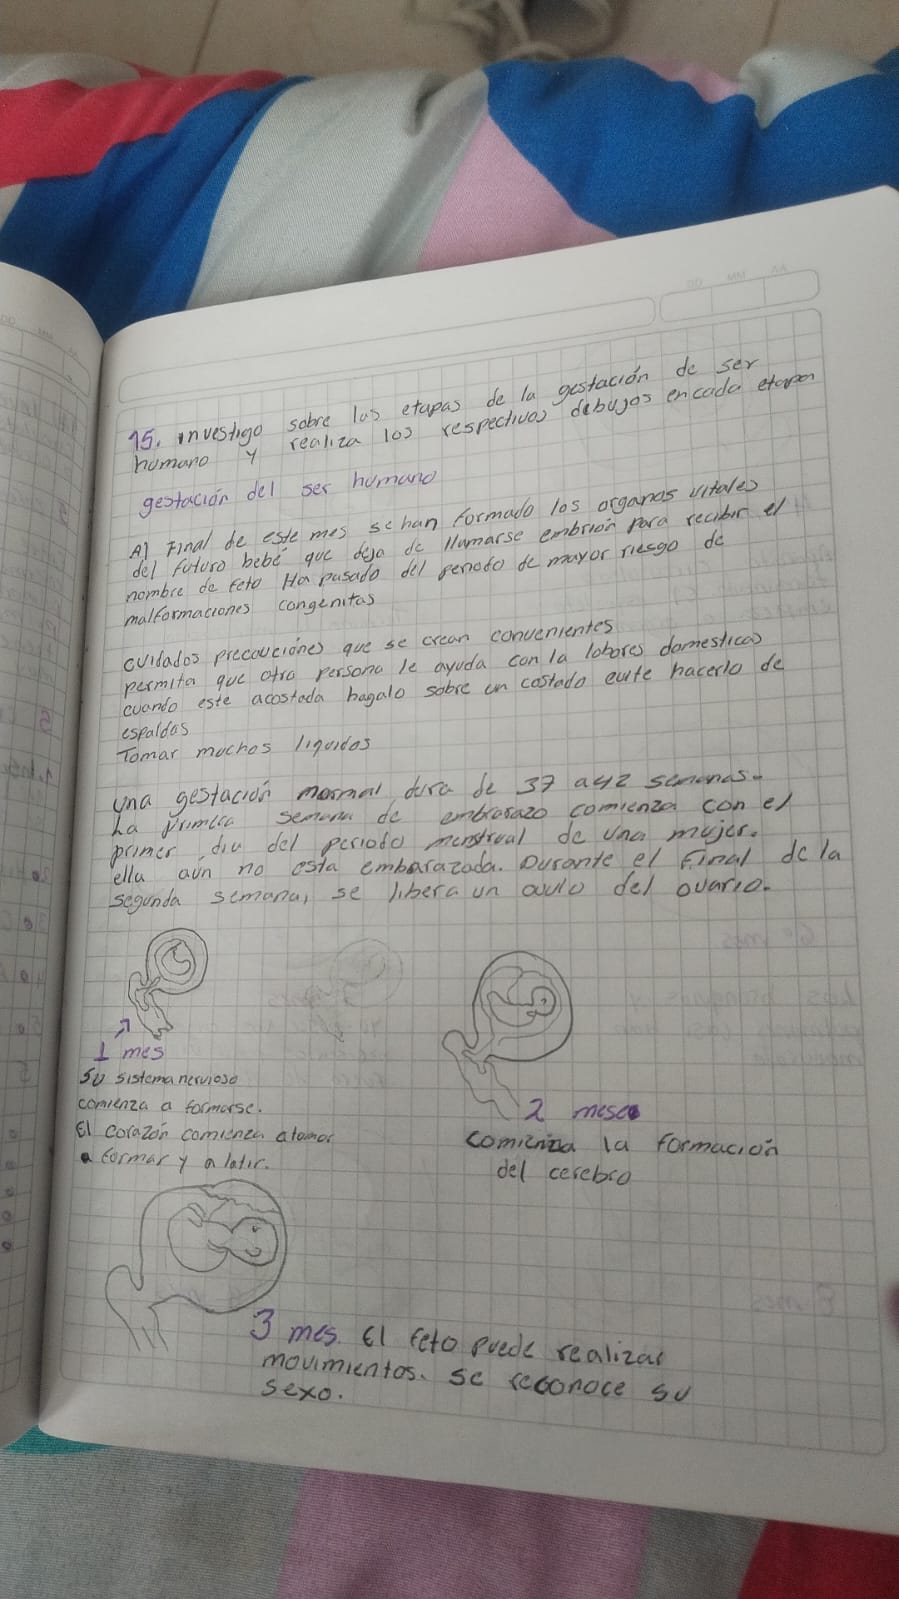 15. investigo sobre las etapas de la gestación de ser
humano y realiza los respectivos debujos en cada etapa
gestación del ser humano
Al Final de este mes se han formado los organos vitales
del futuro bebé que deja de llamarse embrión para recibir el
nombre de feto Ha pasado del periodo de mayor riesgo de
malformaciones congenitas
cuidados precauciones que se crean convenientes
permita que otra persona le ayuda con la labores domesticas
cuando este acostada hagalo sobre un costado evite hacerlo de
espaldas
Tomar muchos liquidos
una gestación normal dura de 37 a 42 semanas.
La primera semana de embrarazo comienza con el
primer día del periodo menstrual de una mujer.
ella aún no esta embarazada. Durante el Final de la
segunda semana, se libera un ovulo del ovario.
1 mes
su sistema nervioso
comienza a formarse.
El corazón comienza a tomar
a formar y a latir.
2 meses
comienza la formación
del cerebro
3 mes. El feto puede realizar
movimientos. se reconoce su
sexo.